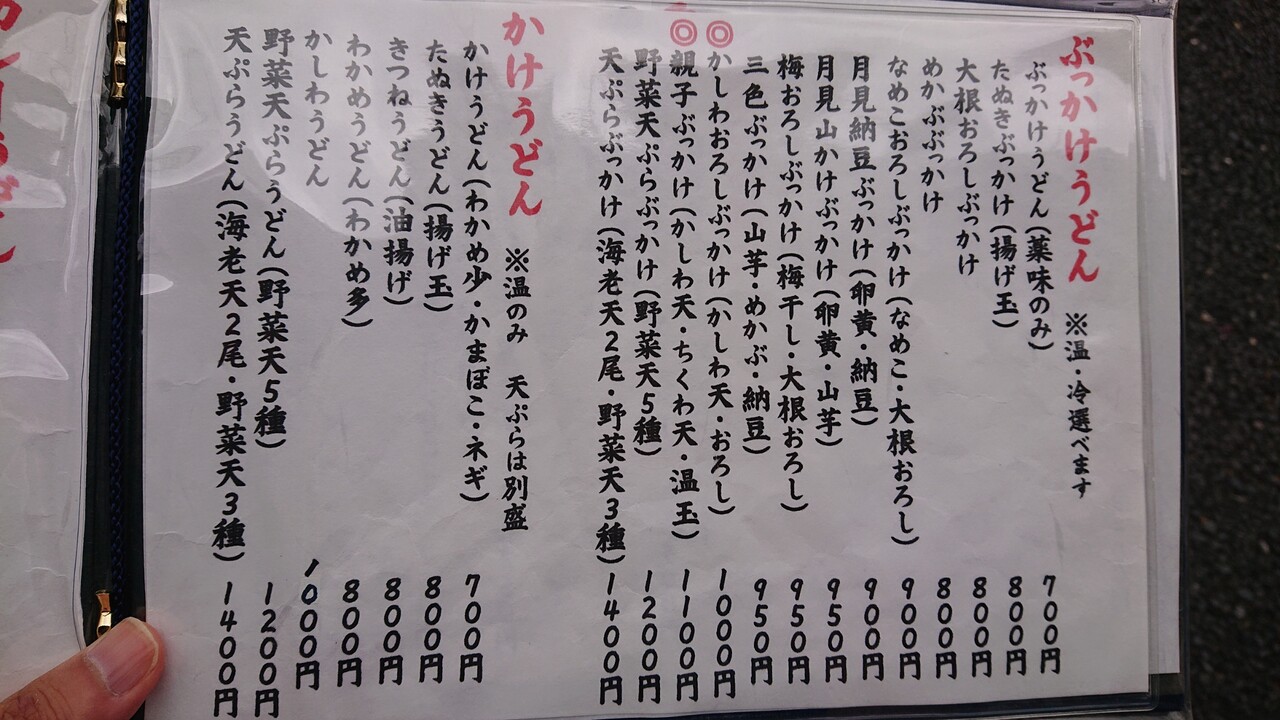 ぶっかけうどん ※温・冷選べます
ぶっかけうどん(薬味のみ) 700円
たぬきぶっかけ(揚げ玉) 800円
大根おろしぶっかけ 800円
めかぶぶっかけ 800円
なめこおろしぶっかけ(なめこ・大根おろし) 900円
月見納豆ぶっかけ(卵黄・納豆) 900円
月見山かけぶっかけ(卵黄・山芋) 950円
梅おろしぶっかけ(梅干し・大根おろし) 950円
三色ぶっかけ(山芋・めかぶ・納豆) 950円
◎かしわおろしぶっかけ(かしわ天・おろし) 1000円
◎親子ぶっかけ(かしわ天・ちくわ天・温玉) 1100円
野菜天ぷらぶっかけ(野菜天5種) 1200円
天ぷらぶっかけ(海老天2尾・野菜天3種) 1400円
かけうどん ※温のみ 天ぷらは別盛
かけうどん(わかめ少・かまぼこ・ネギ) 700円
たぬきうどん(揚げ玉) 800円
きつねうどん(油揚げ) 800円
わかめうどん(わかめ多) 800円
かしわうどん 1000円
野菜天ぷらうどん(野菜天5種) 1200円
天ぷらうどん(海老天2尾・野菜天3種) 1400円